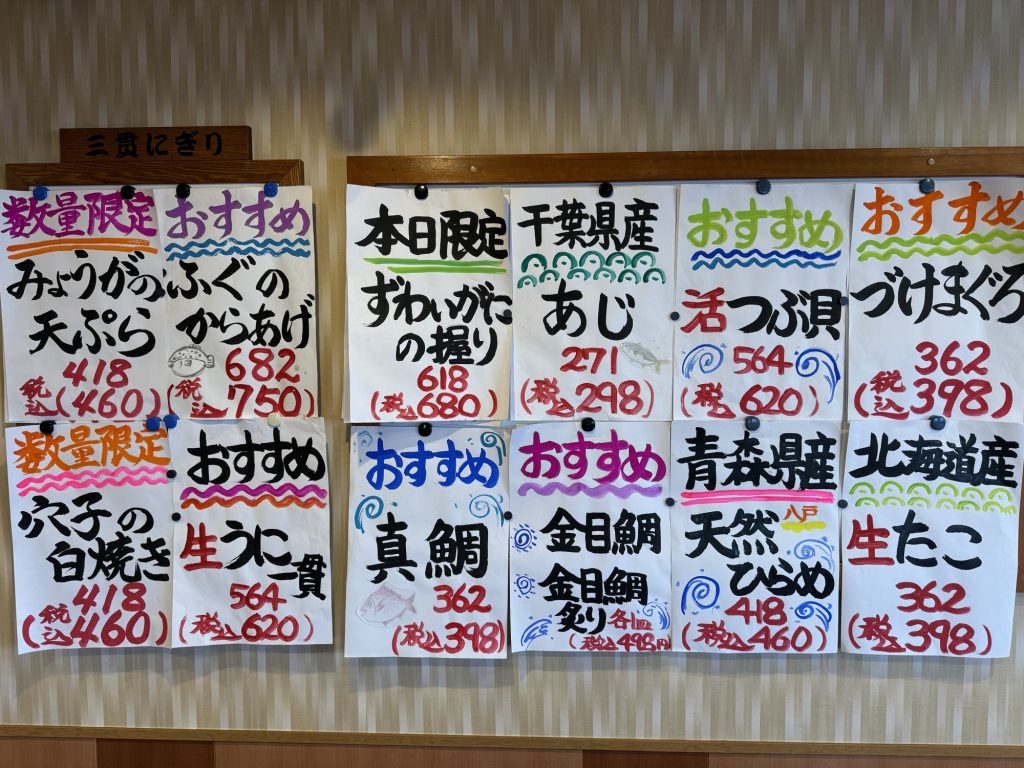 三貫にぎり
数量限定
みょうがの
天ぷら
418
(税込460)
おすすめ
ふぐの
からあげ
682
(税込750)
本日限定
ずわいがに
の握り
618
(税込680)
千葉県産
あじ
271
(税込298)
おすすめ
活つぶ貝
564
(税込620)
おすすめ
づけまぐろ
362
(税込398)
数量限定
穴子の
白焼き
418
(税込460)
おすすめ
生うに
一貫
564
(税込620)
おすすめ
真鯛
362
(税込398)
おすすめ
金目鯛
金目鯛
炙り 各1皿
(税込498円)
青森県産
八戸
天然
ひらめ
418
(税込460)
北海道産
生たこ
362
(税込398)